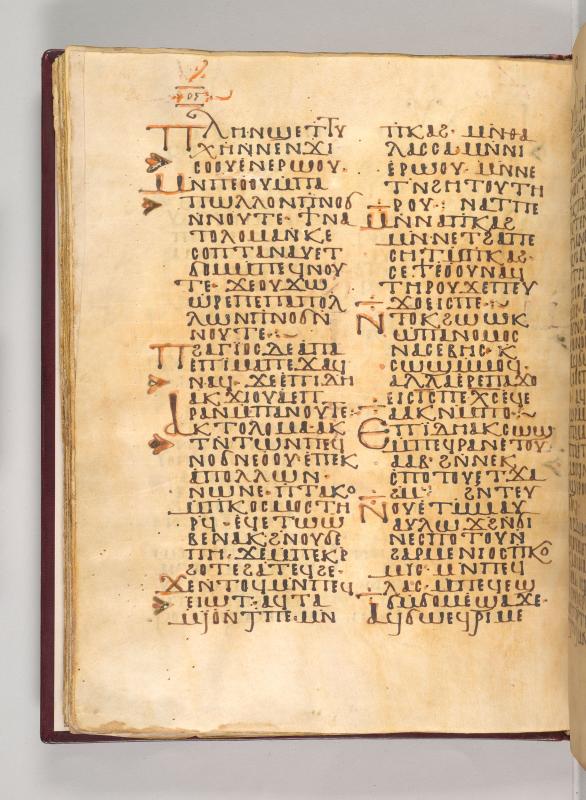 ⲟⲋ
ⲡⲗⲏⲛ ϣⲉ ⲧⲧⲩ
ⲭⲏ ⲛⲛⲉⲛϫⲓ
ⲥⲟⲟⲩⲉ ⲛⲉⲣⲱⲟⲩ·
ⲙⲛ ⲡⲉⲟⲟⲩ ⲙⲡⲁ
ⲡⲱⲗⲗⲟⲛ ⲡⲛⲟϭ
ⲛⲛⲟⲩⲧⲉ· ϯⲛⲁ
ⲧⲟⲗⲟⲙⲁ ⲛⲕⲉ
ⲥⲟⲡ ⲧⲁⲛⲁⲩ ⲉⲧ
ϭⲟⲙ ⲙⲡⲉϥⲛⲟⲩ
ⲧⲉ· ϫⲉ ⲟⲩ ϫⲱ
ⲱⲣⲉ ⲡⲉ ⲡⲁⲡⲟⲗ
ⲗⲱⲛ ⲡⲛⲟϭ ⲛ
ⲛⲟⲩⲧⲉ·
ⲡϩⲁⲅⲓⲟⲥ ⲇⲉ ⲁⲡⲁ
ⲉⲡⲓⲙⲁ ⲡⲉϫⲁϥ
ⲛⲁϥ· ϫⲉ ⲉⲡⲓⲇⲏ
ⲁⲕϫⲓⲟⲩⲁ ⲉⲡ
ⲣⲁⲛ ⲙⲡⲁⲛⲟⲩⲧⲉ·
ⲁⲕⲧⲟⲗⲟⲙⲁ· ⲁⲕ
ⲧⲛⲧⲱⲛ ⲡⲉϥ
ⲛⲟϭ ⲛⲉⲟⲟⲩ· ⲉⲡⲉⲕ
ⲁⲡⲟⲗⲗⲱⲛ·
ⲛⲱⲛⲉ· ⲡⲧⲁⲕⲟ
ⲙⲡⲕⲟⲥⲙⲟⲥ ⲧⲏ
ⲣϥ· ⲉϥⲉⲧⲱⲱ
ⲃⲉ ⲛⲁⲕ ϩⲛ ⲟⲩϭⲉ
ⲡⲏ· ϫⲉ ⲙⲡⲉⲕⲣ
ϩⲟⲧⲉ ϩⲁ ⲧⲉϥϩⲉ·
ϫⲉ ⲛⲧⲟϥ ⲙⲛ ⲡⲉϥ
ⲉⲓⲱⲧ· ⲁϥⲧⲁ
ⲙⲓⲟ ⲛⲧⲡⲉ· ⲙⲛ
ⲡⲕⲁϩ· ⲙⲛ ⲑⲁ
ⲗⲁⲥⲥⲁ ⲙⲛ ⲛⲓ
ⲉⲣⲱⲟⲩ· ⲙⲛ ⲛⲉ
ⲧⲛϩⲏⲧⲟⲩ ⲧⲏ
ⲣⲟⲩ: ⲛⲁ ⲧⲡⲉ
ⲙⲛ ⲛⲁ ⲡⲕⲁϩ
ⲙⲛ· ⲛⲉⲧϩⲁ ⲡⲉ
ⲥⲏⲧ ⲙⲡⲕⲁϩ·
ⲥⲉϯⲉⲟⲟⲩ ⲛⲁϥ
ⲧⲏⲣⲟⲩ ϫⲉ ⲡⲉⲩ
ϫⲟⲉⲓⲥ ⲡⲉ·
ⲛⲧⲟⲕ ϩⲱⲱⲕ
ⲱ ⲡⲁⲛⲟⲙⲟⲥ
ⲛⲁⲥⲉⲃⲏⲥ· ⲕ
ⲥⲱϣ ⲙⲙⲟϥ·
ⲁⲗⲗⲁ ⲉⲣⲉ ⲡⲁϫⲟ
ⲉⲓⲥ ⲓⲥ ⲡⲉⲭⲥ ⲉϥⲉ
ⲧⲁⲕ ⲛⲙⲡⲟ·
ⲉⲡⲓⲇⲏ ⲁⲕⲥⲱϣ
ⲙⲡⲉϥⲣⲁⲛ ⲉⲧⲟⲩ
ⲁⲁⲃ· ϩⲛ ⲛⲉⲕ
ⲥⲡⲟⲧⲟⲩ ⲉⲧ
ϩⲛ ⲧⲉⲩ
ⲛⲟⲩ ⲉⲧⲙⲙⲁⲩ
ⲁⲩⲗⲱ ϫ ϩⲛϭⲓ
ⲛⲉⲥⲡⲟⲧⲟⲩ ⲛ
ϩⲁⲣⲙⲉⲛⲓⲟⲥ ⲡⲕⲟ
ⲙⲥ· ⲙⲛ ⲡⲉϥ
ⲗⲁⲥ· ⲙⲡⲉϥⲉϣ
ϭⲙϭⲟⲙ ⲉϣⲁϫⲉ·
ⲁϥϭⲱ ⲉϥⲣⲓⲙⲉ